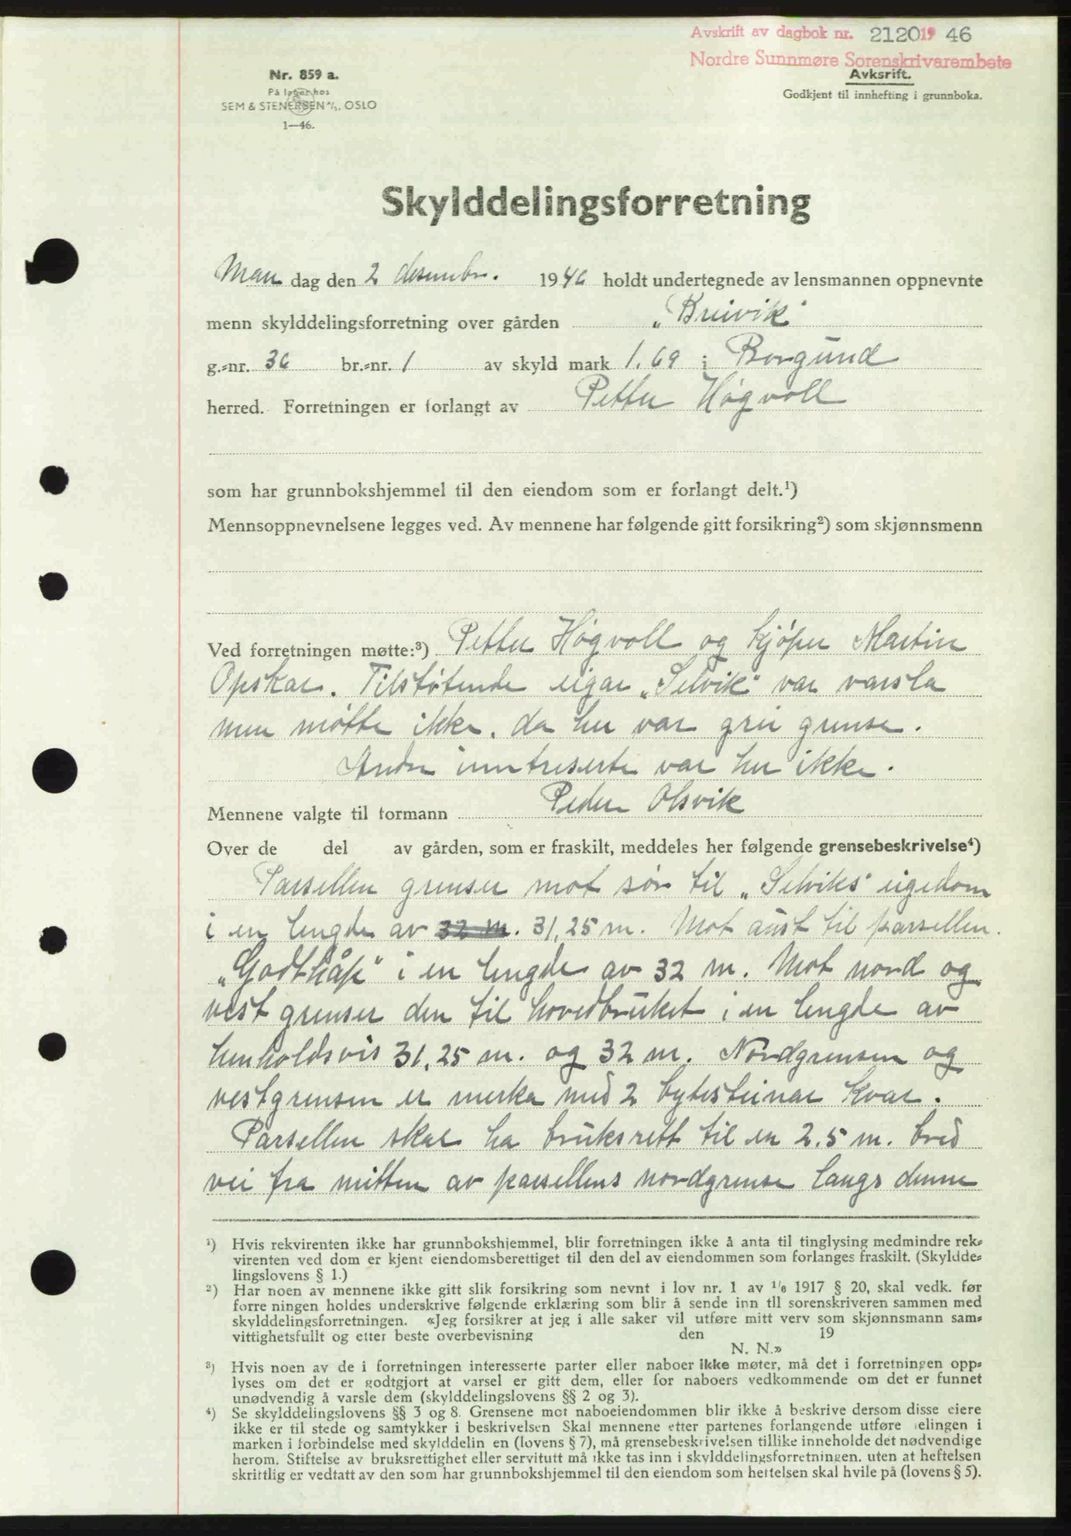 Avskrift av dagbok nr. 2120 1946
Nordre Sunnmøre Sorenskrivarembete
Nr. 859 a.
På lager hos
SEM & STENERSEN A/S, OSLO
1—46.
Avskrift.
Godkjent til innhefting i grunnboka.
Skylddelingsforretning
Man dag den 2 desembr. 1946 holdt undertegnede av lensmannen oppnevnte
menn skylddelingsforretning over gården „Breivik"
g.-nr. 36 br.-nr. 1 av skyld mark 1.69 i Borgund
herred. Forretningen er forlangt av Petter Høgvoll
som har grunnbokshjemmel til den eiendom som er forlangt delt.¹)
Mennsoppnevnelsene legges ved. Av mennene har følgende gitt forsikring²) som skjønnsmenn
Ved forretningen møtte:³) Petter Høgvoll og kjøper Martin
Opskar. Tilstøtende eigar „Selvik" var varsla
men møtte ikke, da her var grei grense.
Andre interesserte var her ikke.
Mennene valgte til formann Peder Olsvik
Over de del av gården, som er fraskilt, meddeles her følgende grensebeskrivelse⁴)
Parsellen grenser mot sør til „Selviks" eigedom
i en lengde av 32 m. 31,25 m. Mot aust til parsellen
„Godthåp" i en lengde av 32 m. Mot nord og
vest grenser den til hovedbruket i en lengde av
henholdsvis 31,25 m. og 32 m. Nordgrensen og
vestgrensen er merka med 2 bytesteinar kvar.
Parsellen skal ha bruksrett til en 2.5 m. bred
vei fra mitten av parsellens nordgrense langs denne
¹) Hvis rekvirenten ikke har grunnbokshjemmel, blir forretningen ikke å anta til tinglysing medmindre rek-
virenten ved dom er kjent eiendomsberettiget til den del av eiendommen som forlanges fraskilt. (Skyldde-
lingslovens § 1.)
²) Har noen av mennene ikke gitt slik forsikring som nevnt i lov nr. 1 av 1/6 1917 § 20, skal vedk. før
forretningen holdes underskrive følgende erklæring som blir å sende inn til sorenskriveren sammen med
skylddelingsforretningen. «Jeg forsikrer at jeg i alle saker vil utføre mitt verv som skjønnsmann sam-
vittighetsfullt og etter beste overbevisning den 19
N. N.»
³) Hvis noen av de i forretningen interesserte parter eller naboer ikke møter, må det i forretningen opp-
lyses om det er godtgjort at varsel er gitt dem, eller for naboers vedkommende om det er funnet
unødvendig å varsle dem (skylddelingslovens §§ 2 og 3).
⁴) Se skylddelingslovens §§ 3 og 8. Grensene mot naboeiendommen blir ikke å beskrive dersom disse eiere
ikke er til stede og samtykker i beskrivelsen Skal mennene etter partenes forlangende utføre delingen i
marken i forbindelse med skylddelingen (lovens § 7), må grensebeskrivelsen tillike inneholde det nødvendige
herom. Stiftelse av bruksrettighet eller servitutt må ikke tas inn i skylddelingsforretningen, uten at heftelsen
skriftlig er vedtatt av den som har grunnbokshjemmel til den eiendom som heftelsen skal hvile på (lovens § 5).